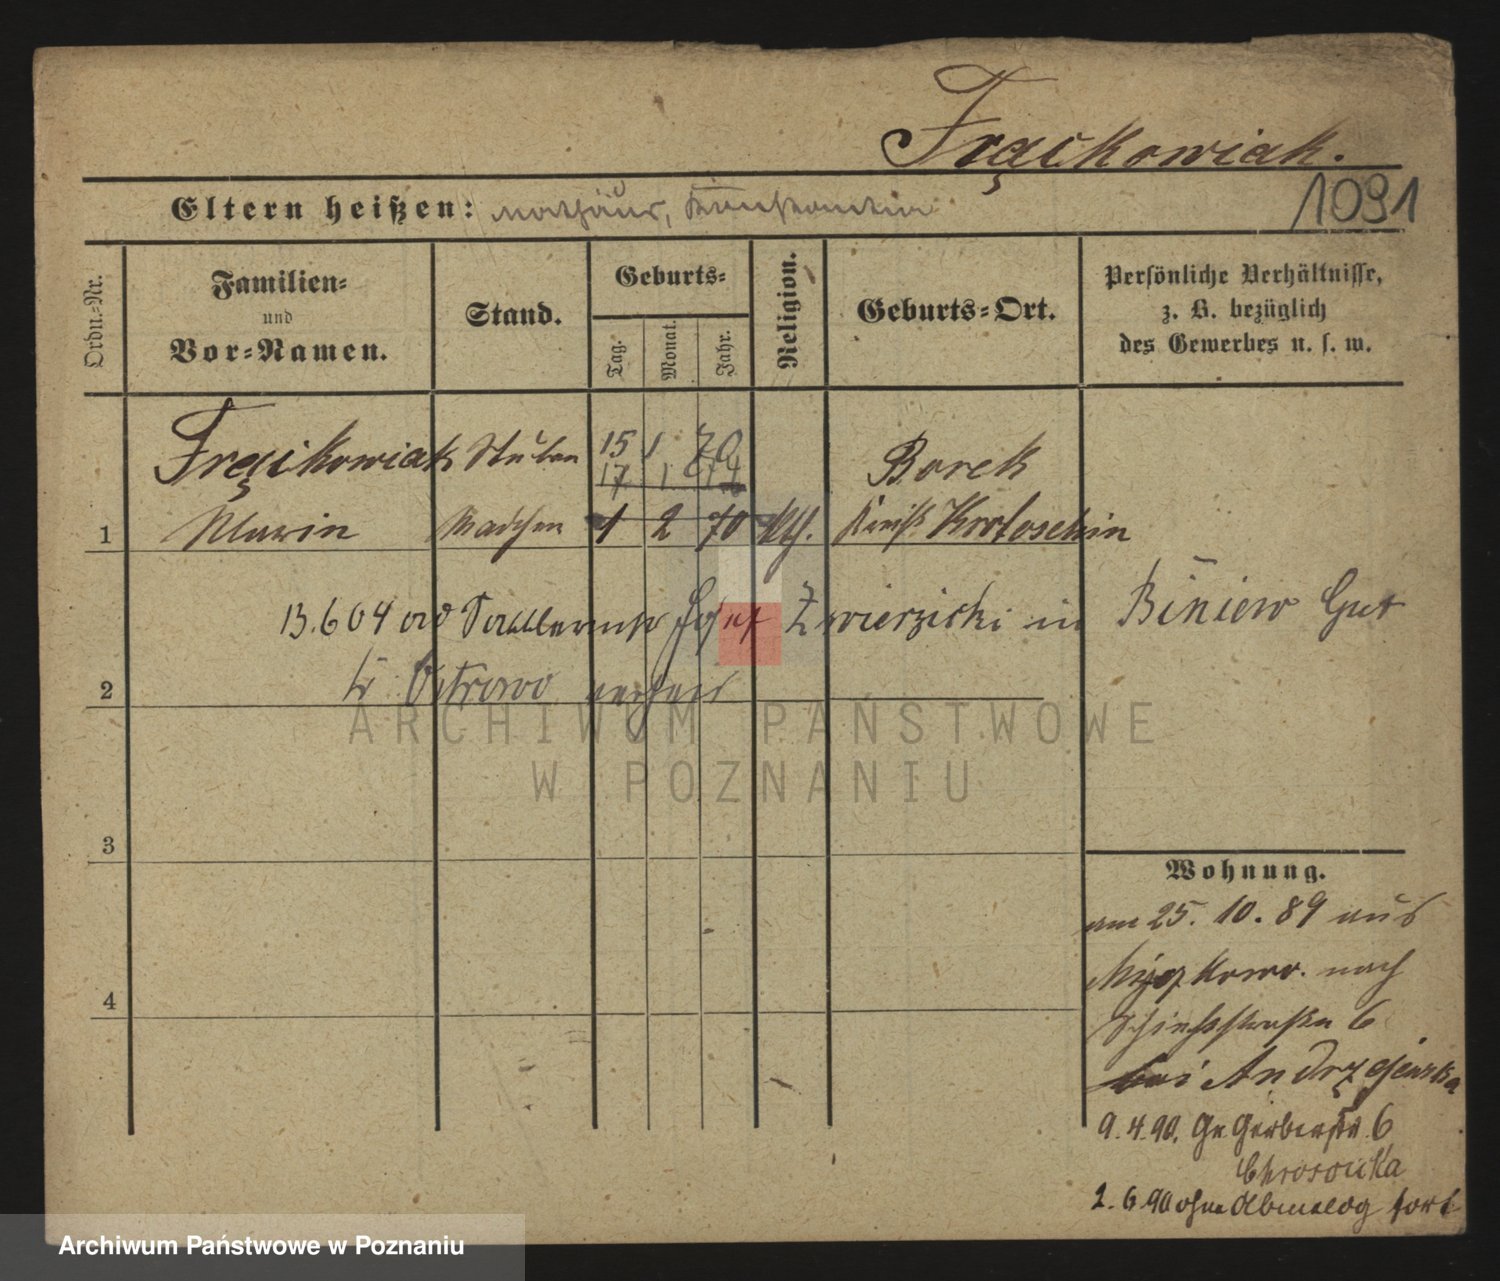 Frąckowiak.
Eltern heißen: Mathäus,
1091
Ordn.-Nr.
Familien-
und
Vor-Namen.
Stand.
Geburts-
Tag.
Monat.
Jahr.
Religion.
Geburts-Ort.
Persönliche Verhältnisse,
z. B. bezüglich
des Gewerbes u. s. w.
Frąckowiak Stuben 15 1 70 Borek
17. 1. 74
1 Marin Madchen 1 2 70 kth. Kreis Krotoschin
13.6 04 Josef Zwierzicki in Biniew Gut
2 Kr Ostrowo
3
4
ARCHIWUM PAŃSTWOWE
W POZNANIU
Wohnung.
am 25. 10. 89 aus
nach
Schießstraße 6
bei Andrzejewska
9. 4. 90. Gr. Gerberstr. 6
Chrosouka
2. 6. 90 ohne Abmeldg fort
Archiwum Państwowe w Poznaniu